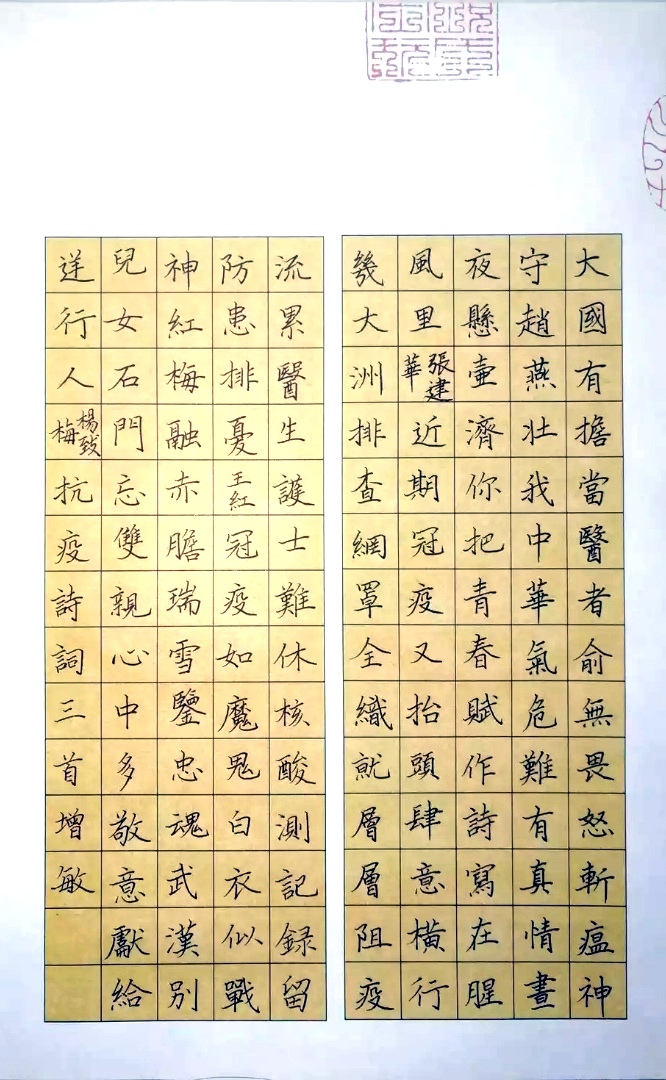 大國有擔當醫者俞無畏怒斬瘟神
守趙燕壯我中華氣危難有真情晝
夜懸壺濟你把青春賦作詩寫在腥
風里張建華近期冠疫又抬頭肆意橫行
幾大洲排查網罩全織就層層阻疫
流累醫生護士難休核酸測記錄留
防患排憂王紅冠疫如魔鬼白衣似戰
神紅梅融赤膽瑞雪鑒忠魂武漢別
兒女石門忘雙親心中多敬意獻給
逆行人楊致梅抗疫詩詞三首增敏